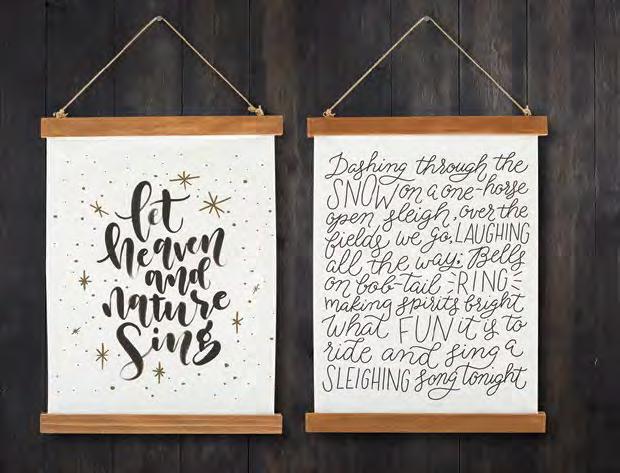 let
heaven
and
nature
Sing
Dashing through the
SNOW on a one-horse
open sleigh, over the
fields we go, LAUGHING
all the way; Bells
on bob-tail RING
making spirits bright
What FUN it is to
ride and sing a
SLEIGHING song tonight